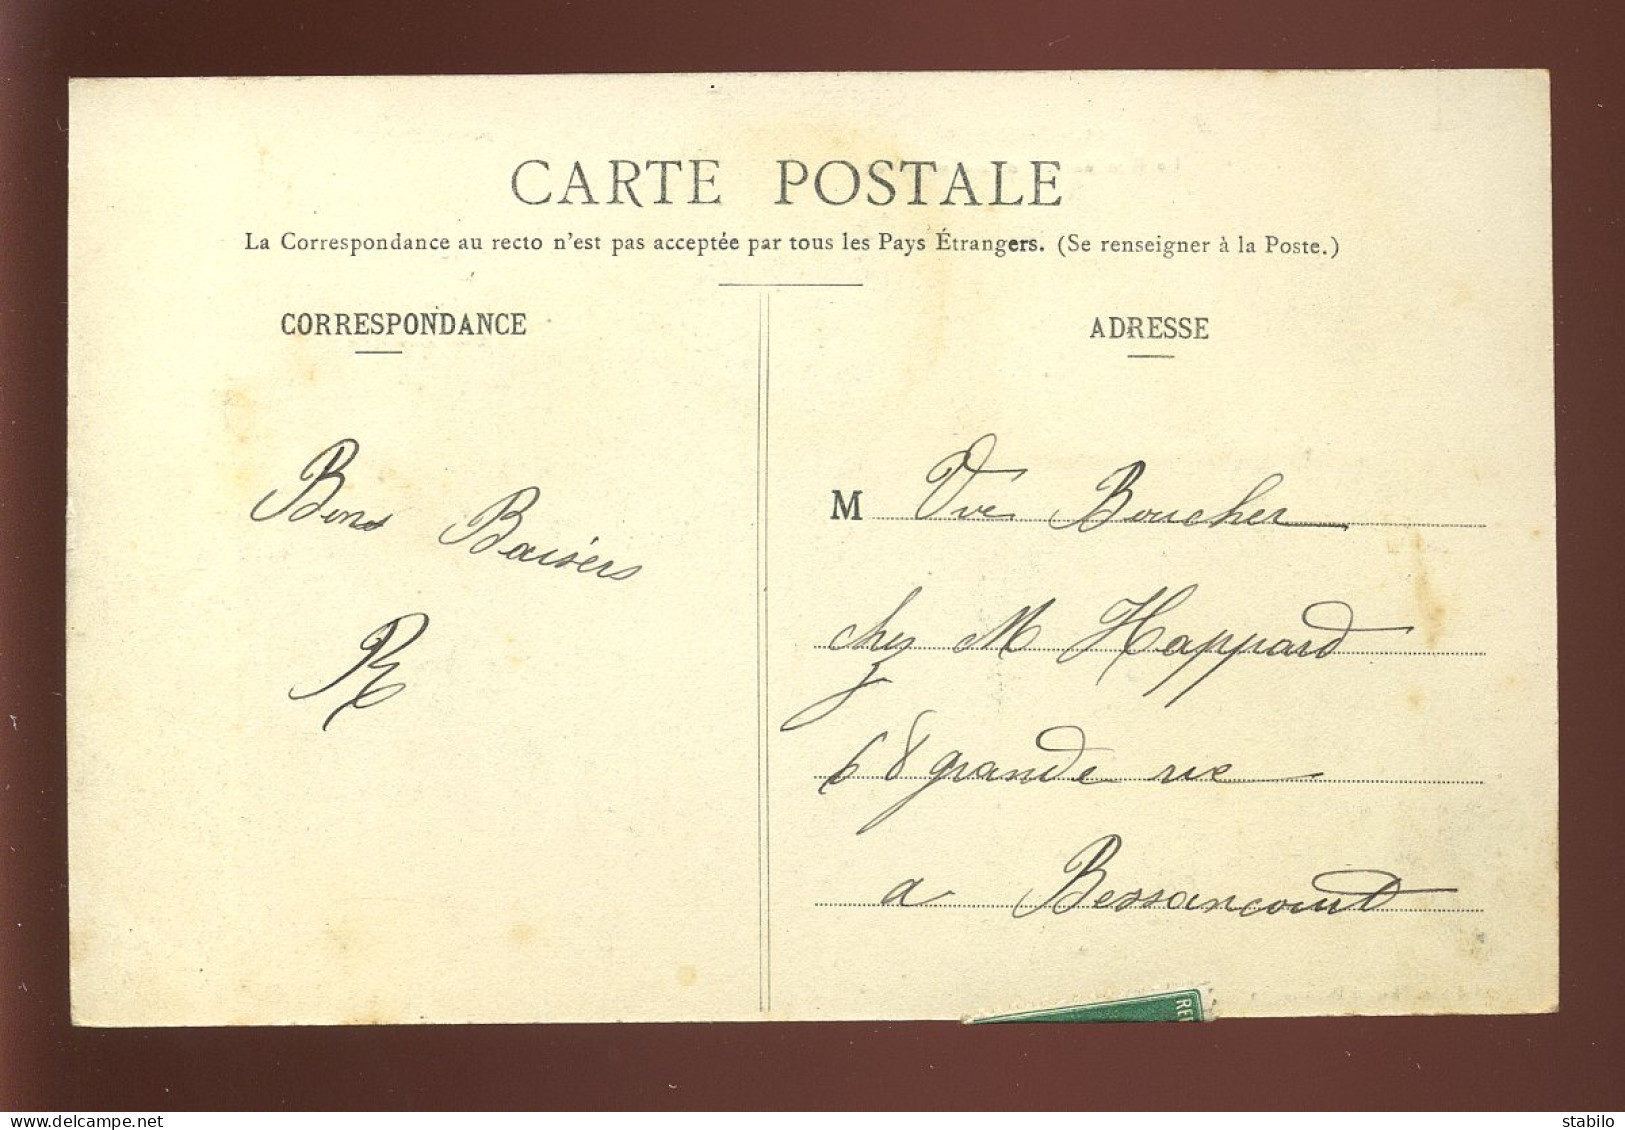 CARTE POSTALE
La Correspondance au recto n'est pas acceptée par tous les Pays Étrangers. (Se renseigner à la Poste.)
CORRESPONDANCE
ADRESSE
Bons Baisers
R
M Vve Boucher
chez M Happard
68 grande rue
a Bessancourt
RE
stabilo
delcampe.net